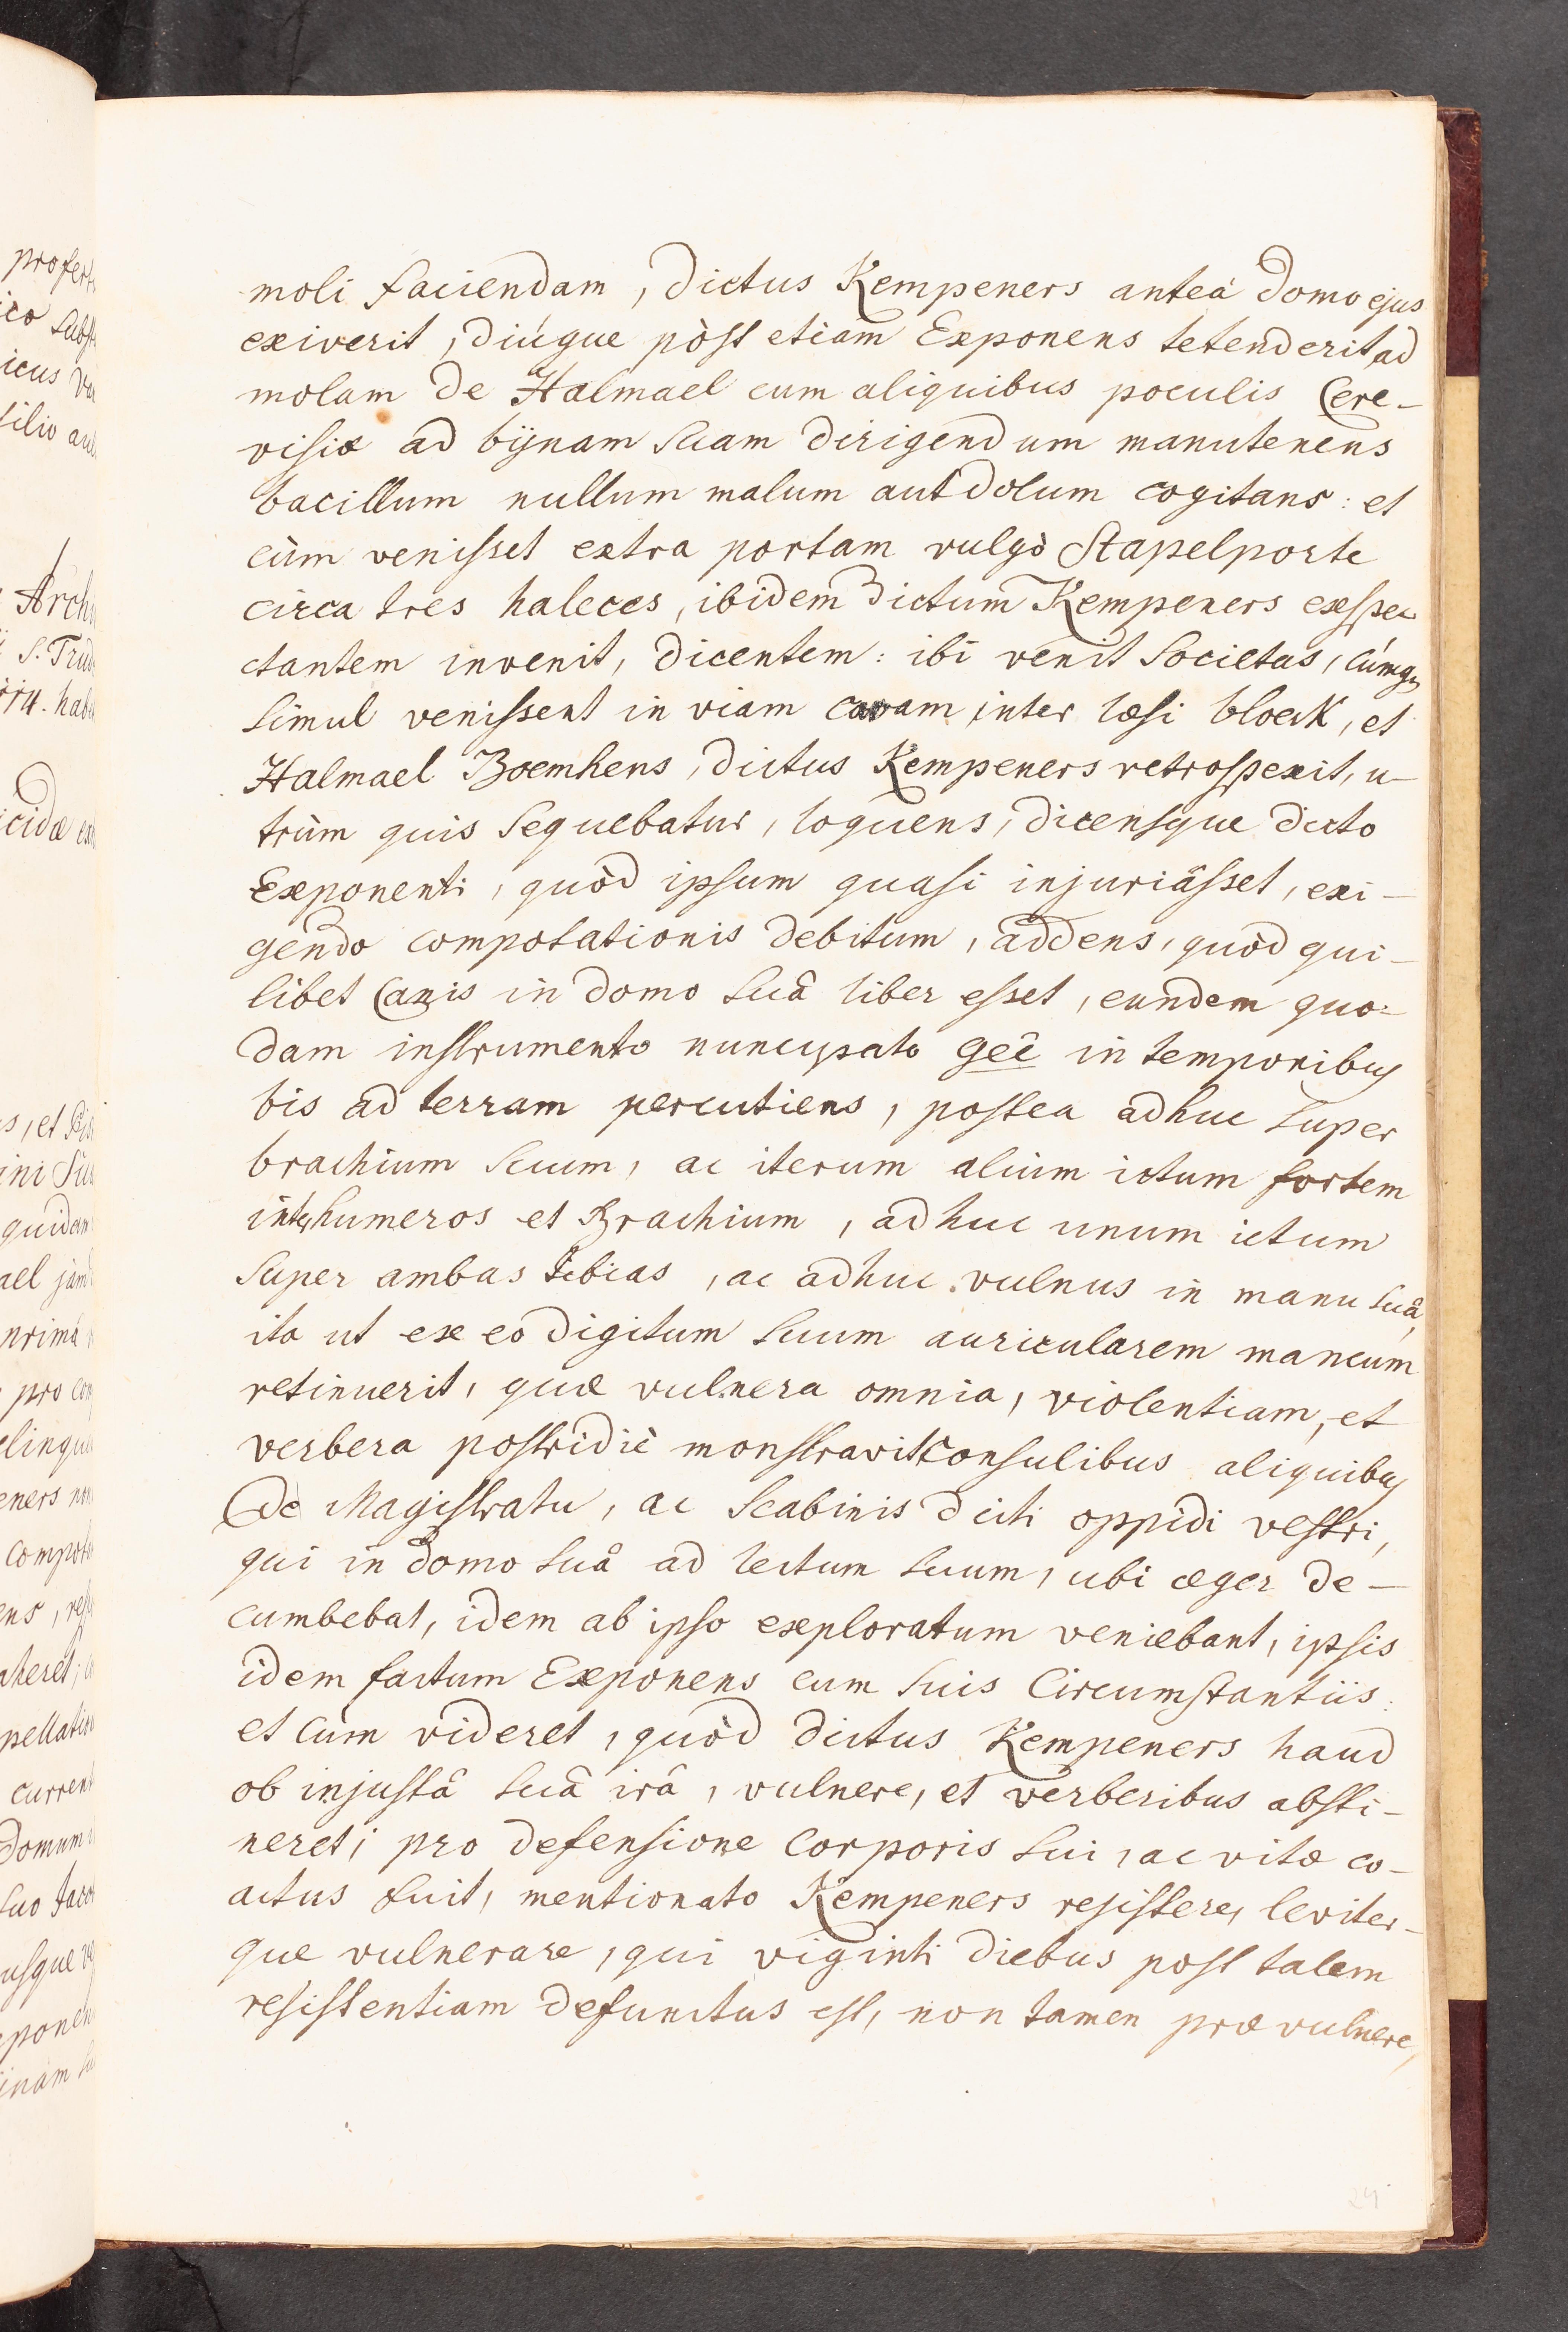 moli faciendam, dictus Kempeners anteà domo ejus
exiverit, diúque pòst etiam Exponens tetenderit ad
molam de Halmael cum aliquibus poculis Cere-
visiæ ad bijnam suam dirigendum manutenens
bacillum nullum malum aut dolum cogitans: et
cùm venisset extra portam vulgò Stapelporte
circa tres haleces, ibidem dictum Kempeners exspe
ctantem invenit, dicentem: ibi venit Societas, cúmq
simul venissent in viam cavam inter læsi bloeck, et
Halmael Boemkens, dictus Kempeners retrospexit, u-
trùm quis sequebatur, loquens, dicensque dicto
Exponenti, quòd ipsum quasi injuriâsset, exi-
gendo compotationis debitum, addens, quòd qui-
libet Canis in domo suâ liber esset, eundem quo=
dam instrumento nuncupato geê in temporibus
bis ad terram percutiens, postea adhuc super
brachium suum, ac iterum alium ictum fortem
inter humeros et Brachium, adhuc unum ictum
super ambas tibias, ac adhuc vulnus in manu suâ,
ita ut ex eo digitum suum auricularem mancum
retinuerit, quæ vulnera omnia, violentiam, et
verbera postridiè monstravit Consulibus aliquibus
De Magistratu, ac Scabinis dicti oppidi vestri,
qui in domo suâ ad lectum suum, ubi æger de-
cumbebat, idem ab ipso exploratum veniebant, ipsis
idem factum Exponens cum suis Circumstantiis:
et cùm videret, quòd dictus Kempeners haud
ob injustâ suâ irâ, vulnere, et verberibus absti-
neret; pro defensione corporis sui, ac vitæ co-
actus fuit, mentionato Kempeners resistere, leviter-
que vulnerare, qui viginti diebus post talem
resistentiam defunctus est, non tamen præ vulnere,
24